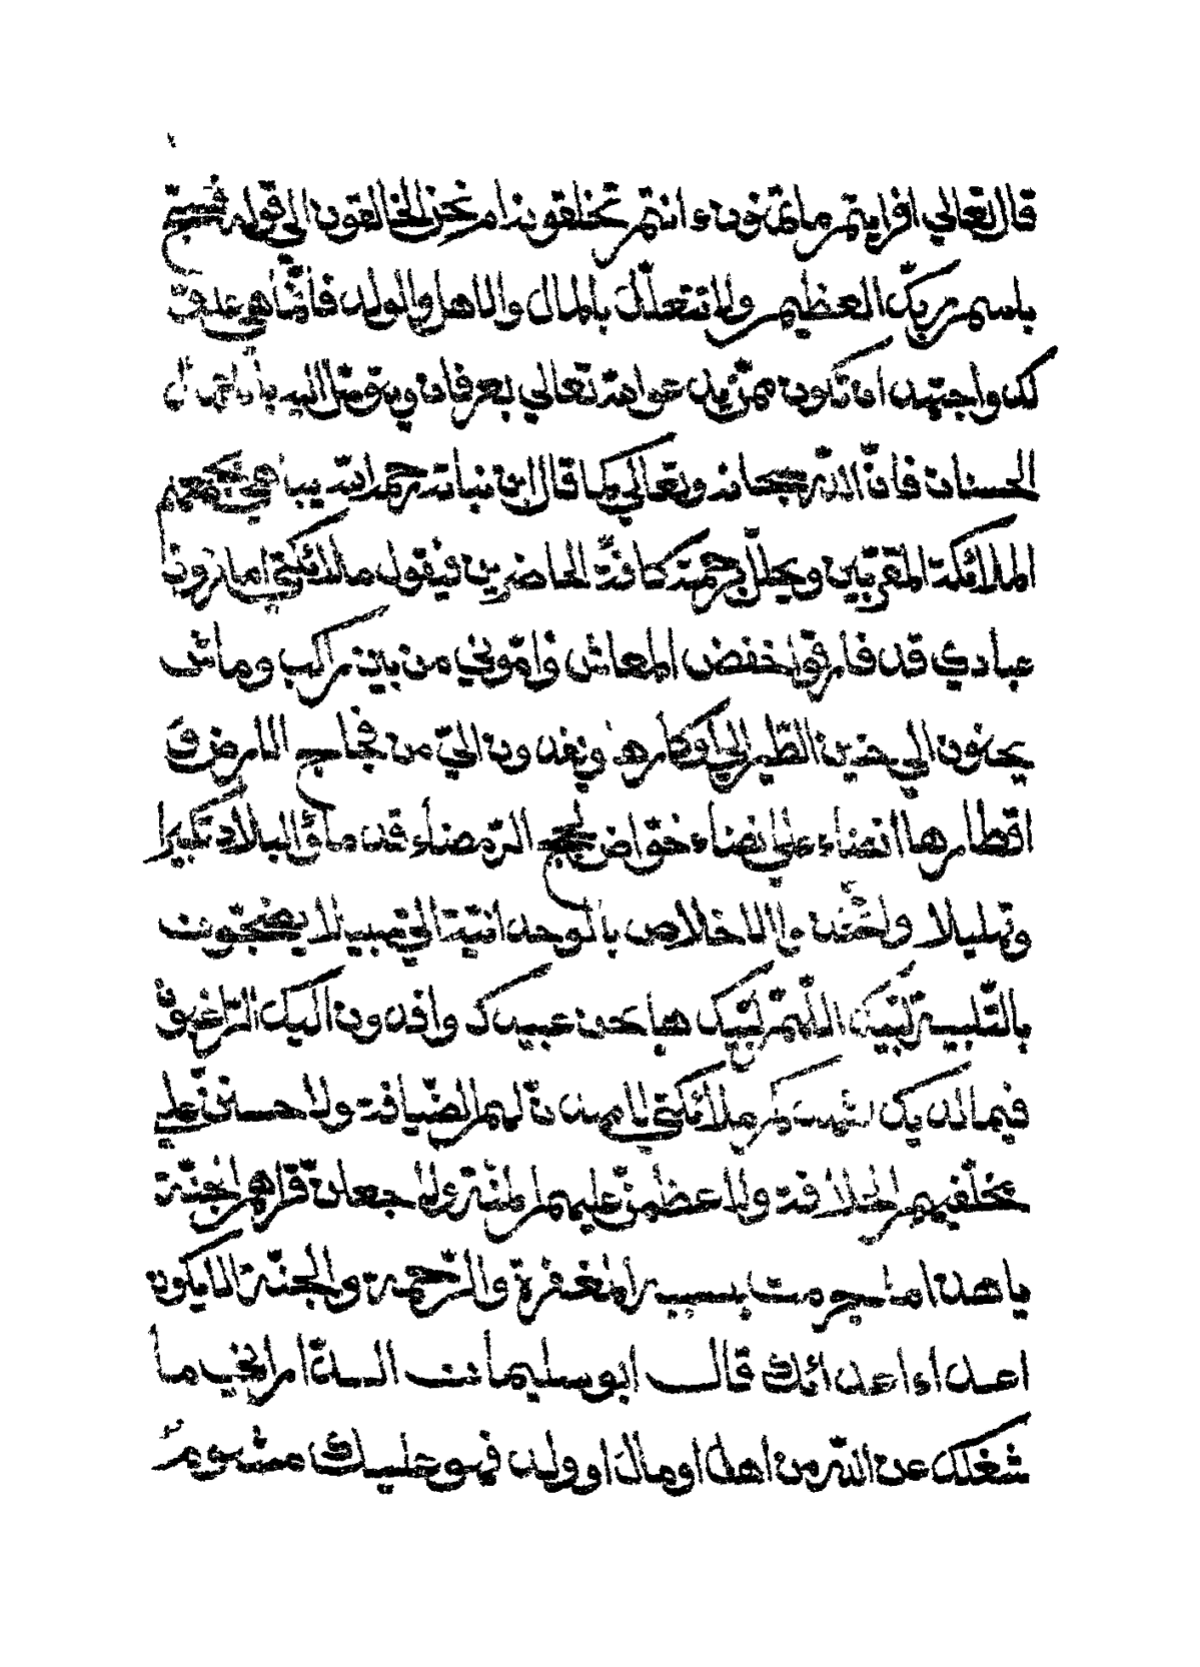 قال تعالي افرايتم ما تمنون ءانتم تخلقونه ام نحن الخالقون الي قوله فسبح
باسم ربك العظيم ولا تتعلّل بالمال والاهل والولد فانّما هي عدوّ
لك واجتهد ان تكون ممّن يك عواهة تعالي بعرفات ويتوسّل اليه
الحسنات فانّ اللّه سبحانه وتعالي كما قال ابن نباتة رحمه اللّه يباهي بجمعهم
الملائكة المقرّبين ويجلّل برحمته كافّة الحاضرين فيقول ملائكتي اما ترون
عبادي قد فارقوا خفض المعاش وامّوني من بين راكب وماش
يحنون اليّ حنين الطّير الي اوكارها ويفدون اليّ من فجاج الارض و
اقطارها انضاء علي انضاء خوّاض لجج الرّمضاء قد ملؤا البلاد تكبيرا
وتهليلا والاخلاص بالوحدانيّة اليّ سبيلا يضجّون
بالتّلبية لبّيك اللّهمّ لبّيك ها نحن عبيدك وافدون اليك الرّاغبون
فيما لديك اشهدكم ملائكتي لاجهدنّ لهم الضّيافة ولاحسننّ علي
مخلّفيهم الخلافة ولاعظمنّ عليهم المنّة ولاجعلنّ قراهم الجنّة
يا هذا امّا حرمت بسببه المغفرة والرّحمة والجنّة الا يكون
اعدا اعدائك قال ابو سليمان الدّاراني ما
شغلك عن اللّه من اهل او مال او ولد فهو عليك مشوم